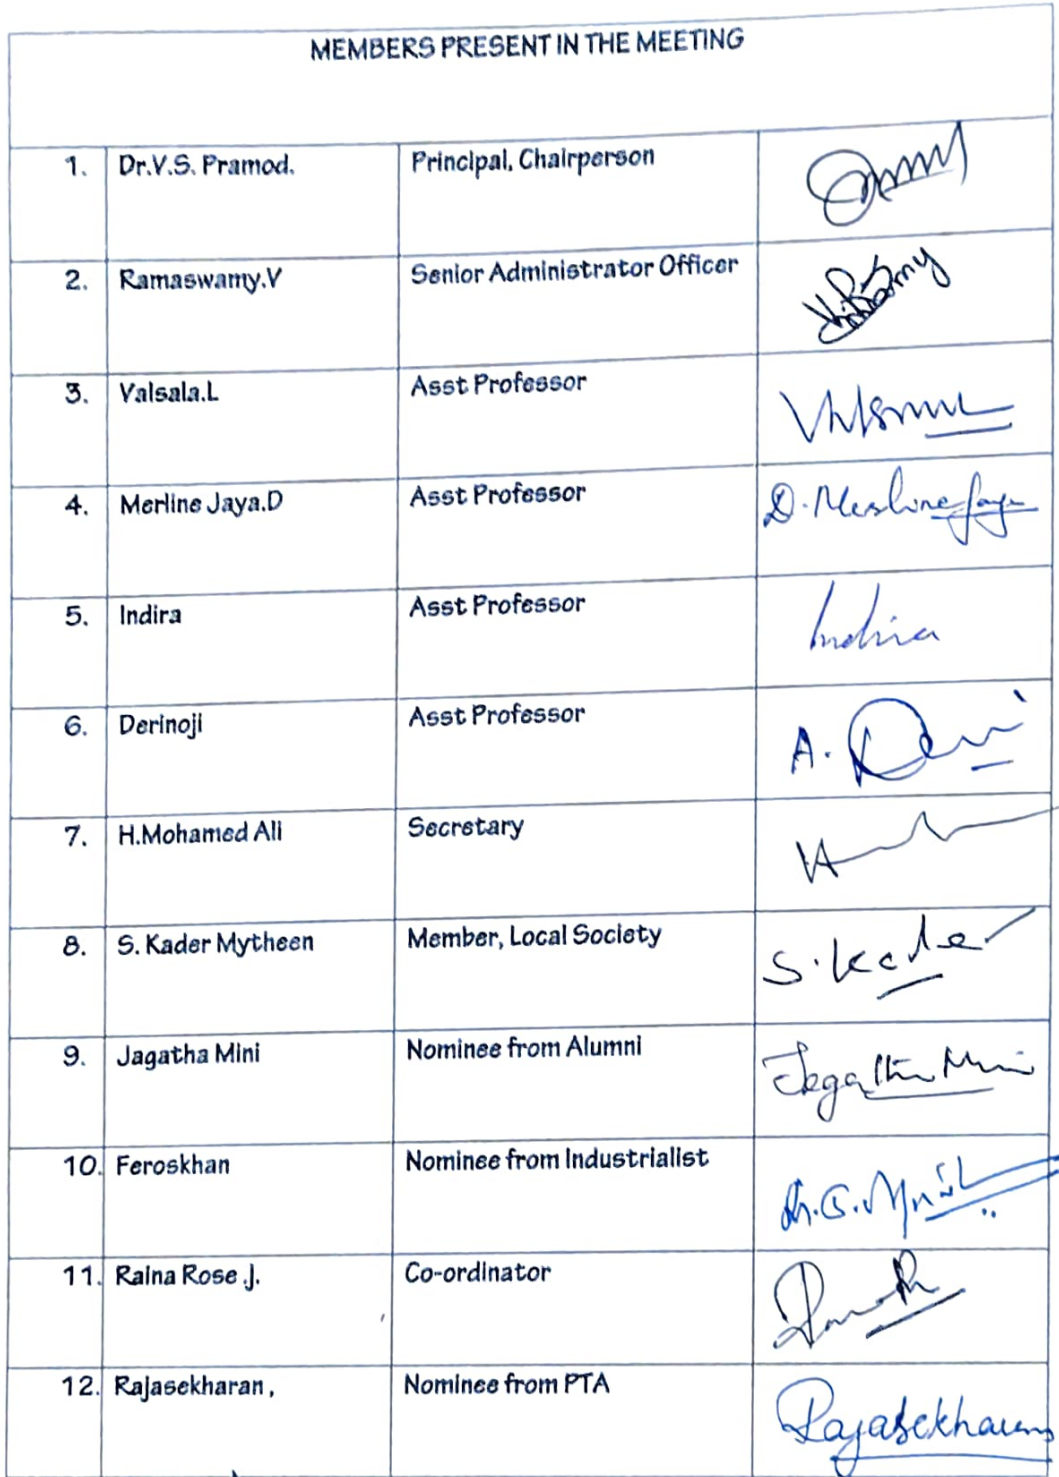 MEMBERS PRESENT IN THE MEETING
1. Dr.V.S. Pramod. Principal, Chairperson
2. Ramaswamy.V Senior Administrator Officer
3. Valsala.L Asst Professor
4. Merline Jaya.D Asst Professor D. Merline Jaya
5. Indira Asst Professor Indira
6. Derinoji Asst Professor
7. H.Mohamed Ali Secretary
8. S. Kader Mytheen Member, Local Society S. Kader
9. Jagatha Mini Nominee from Alumni Jegatha Mini
10. Feroskhan Nominee from Industrialist
11. Raina Rose .J. Co-ordinator
12. Rajasekharan , Nominee from PTA Rajasekharan